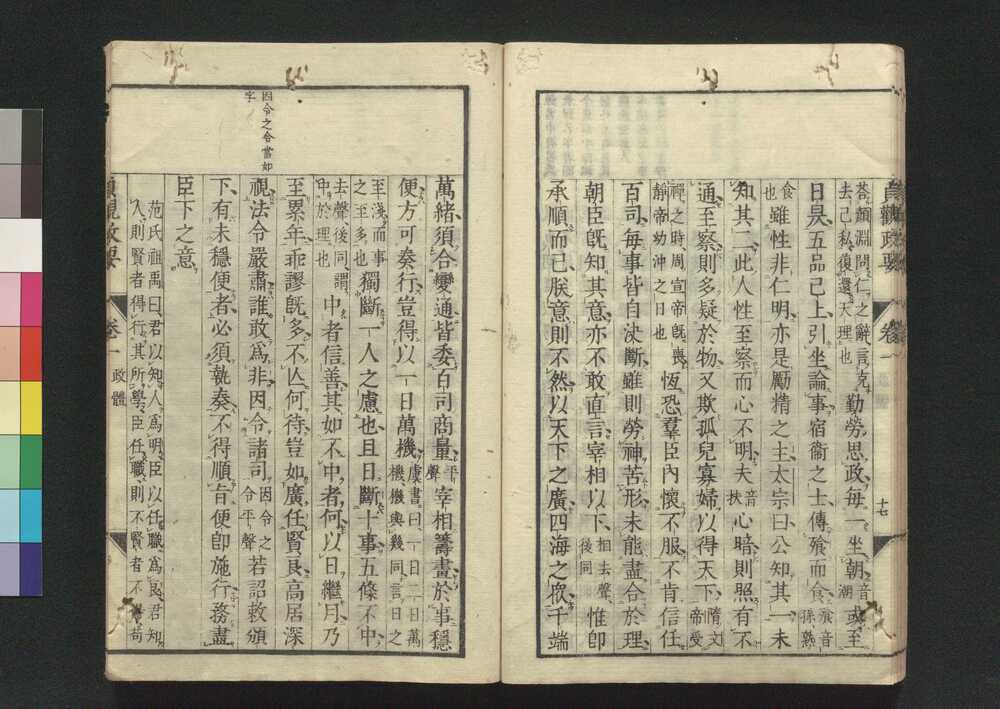 貞觀政要 卷一 十七
荅顏淵問仁之辭言克
去己私復還天理也
勤勞思政每一坐朝音潮或至
日昃五品已上引坐論事宿衞之士傳飱而食飱音孫熟
食也
雖性非仁明亦是勵精之主太宗曰公知其一未
知其二此人性至察而心不明夫音扶心暗則照有不
通至察則多疑於物又欺孤兒寡婦以得天下隋文帝受
禪之時周宣帝旣喪
靜帝幼沖之日也
恆恐羣臣內懷不服不肯信任
百司每事皆自決斷雖則勞神苦形未能盡合於理
朝臣旣知其意亦不敢直言宰相以下相去聲後同惟卽
承順而已朕意則不然以天下之廣四海之衆千端
萬緒須合變通皆委百司商量平聲宰相籌畫於事穩
便方可奏行豈得以一日萬機虞書曰一日二日萬機機與幾同言日之
至淺而事
之至多也
獨斷一人之慮也且日斷十事五條不中
去聲後同謂
中於理也
中者信善其如不中者何以日繼月乃
至累年乖謬旣多不亾何待豈如廣任賢良高居深
視法令嚴肅誰敢爲非因令諸司因令之令平聲若詔敕頒
因令之令當如字
下有未穩便者必須執奏不得順旨便卽施行務盡
臣下之意
范氏祖禹曰君以知人爲明臣以任職爲良君知
人則賢者得行其所學臣任職則不賢者不得苟
貞觀政要 卷一 政體